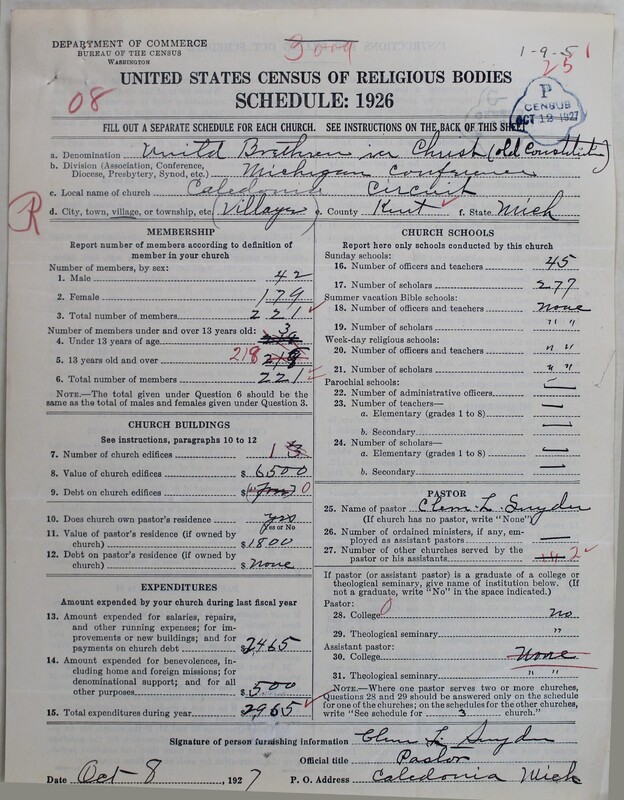 DEPARTMENT OF COMMERCE
BUREAU OF THE CENSUS
WASHINGTON
1-9-5 1
25
08
UNITED STATES CENSUS OF RELIGIOUS BODIES
SCHEDULE: 1926
P
CENSUS
OCT 12 1927
FILL OUT A SEPARATE SCHEDULE FOR EACH CHURCH. SEE INSTRUCTIONS ON THE BACK OF THIS SHEET
a. Denomination United Brethren in Christ (old Constitution)
b. Division (Association, Conference, Diocese, Presbytery, Synod, etc.) Michigan Conference
c. Local name of church Caledonia Circuit
R
d. City, town, village, or township, etc. (Village) e. County Kent f. State Mich
MEMBERSHIP
Report number of members according to definition of member in your church
Number of members, by sex:
1. Male 42
2. Female 179
3. Total number of members 221
Number of members under and over 13 years old:
4. Under 13 years of age 3
5. 13 years old and over 218 218
6. Total number of members 221
NOTE.—The total given under Question 6 should be the same as the total of males and females given under Question 3.
CHURCH BUILDINGS
See instructions, paragraphs 10 to 12
7. Number of church edifices 1 3
8. Value of church edifices $6500
9. Debt on church edifices $ 0
10. Does church own pastor's residence yes
Yes or No
11. Value of pastor's residence (if owned by church) $1800
12. Debt on pastor's residence (if owned by church) $ none
EXPENDITURES
Amount expended by your church during last fiscal year
13. Amount expended for salaries, repairs, and other running expenses; for improvements or new buildings; and for payments on church debt $2465
14. Amount expended for benevolences, including home and foreign missions; for denominational support; and for all other purposes $500
15. Total expenditures during year 2965
CHURCH SCHOOLS
Report here only schools conducted by this church
Sunday schools:
16. Number of officers and teachers 45
17. Number of scholars 277
Summer vacation Bible schools:
18. Number of officers and teachers none
19. Number of scholars " "
Week-day religious schools:
20. Number of officers and teachers " "
21. Number of scholars " "
Parochial schools:
22. Number of administrative officers —
23. Number of teachers—
a. Elementary (grades 1 to 8) —
b. Secondary —
24. Number of scholars—
a. Elementary (grades 1 to 8) —
b. Secondary —
PASTOR
25. Name of pastor Clem. L. Snyder
(If church has no pastor, write "None")
26. Number of ordained ministers, if any, employed as assistant pastors —
27. Number of other churches served by the pastor or his assistants 2
If pastor (or assistant pastor) is a graduate of a college or theological seminary, give name of institution below. (If not a graduate, write "No" in the space indicated.)
Pastor:
28. College 0 no
29. Theological seminary "
Assistant pastor:
30. College None
31. Theological seminary " "
NOTE.—Where one pastor serves two or more churches, Questions 28 and 29 should be answered only on the schedule for one of the churches; on the schedules for the other churches, write "See schedule for 3 church."
Signature of person furnishing information Clem L. Snyder
Official title Pastor
Date Oct-8, 1927 P. O. Address Caledonia Mich